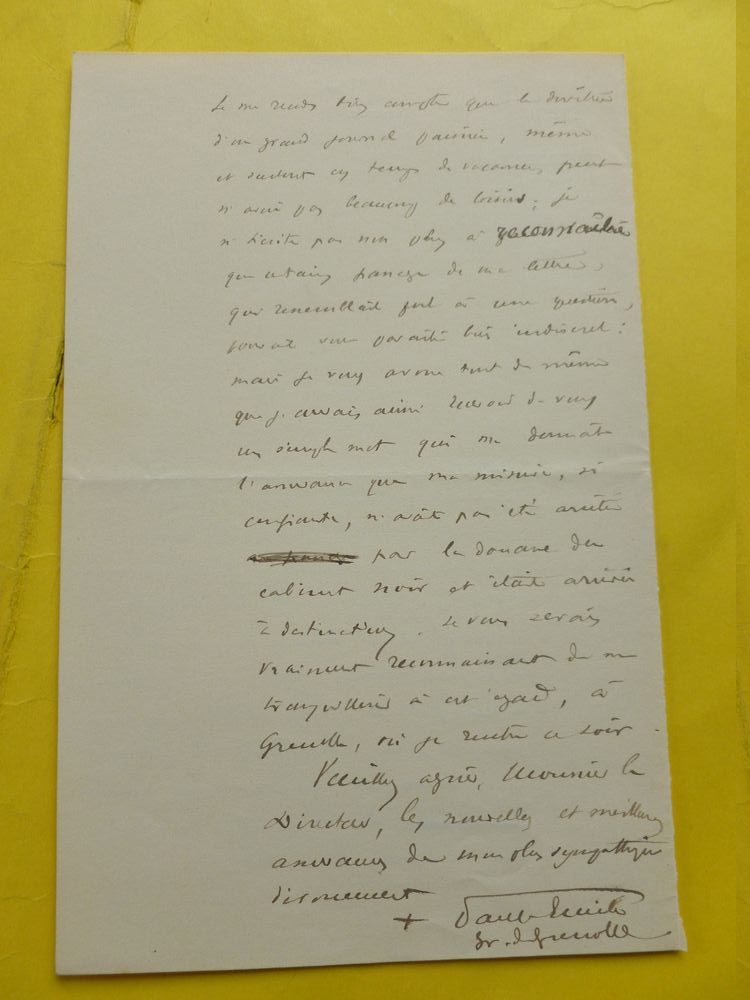 Je me rends bien compte que le directeur
d'un grand journal parisien, même
et surtout en temps de vacances, peut
n'avoir pas beaucoup de loisirs; je
n'hésite pas non plus à reconnaître
que certains passages de ma lettre,
qui ressemblait fort à une question,
pouvait vous paraître bien indiscret:
mais je vous avoue tout de même
que j'aurais aimé recevoir de vous
un simple mot qui me donnât
l'assurance que ma missive, si
confiante, n'avait pas été arrêtée
par la douane du
cabinet noir et était arrivée
à destination. Je vous serais
vraiment reconnaissant de me
tranquilliser à cet égard, à
Grenoble, où je rentre ce soir.
Veuillez agréer, Monsieur le
Directeur, les nouvelles et meilleures
assurances de mon plus sympathique
dévouement
+ Paul-Emile
Ev. de Grenoble